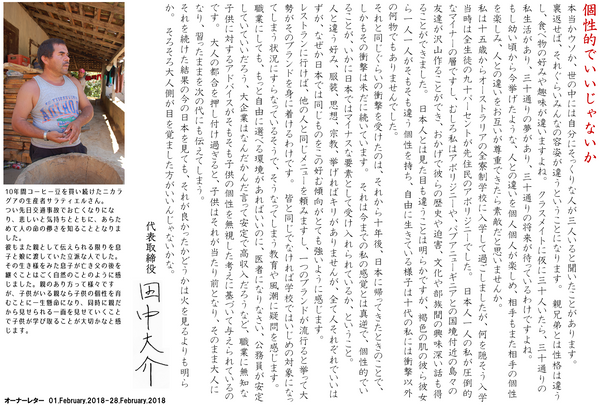 個性的でいいじゃないか
本当かウソか、世の中には自分にそっくりな人が三人いると聞いたことがあります。
裏返せば、それぐらいみんなの容姿が違うということになります。親兄弟とは性格は違う
し、食べ物の好みや趣味が違いますよね。クラスメイトに仮に三十人いたら、三十通りの
私生活があり、三十通りの夢があり、三十通りの将来が待っているわけですよね。
もし幼い頃から今挙げたような、人との違いを個人個人が楽しめ、相手もまた相手の個性
を楽しみ、人との違いをお互いが尊重できたら素敵だと思いませんか。
私は十五歳からオーストラリアの全寮制学校に入学して過ごしましたが、何を隠そう入学
当時は全生徒の九十パーセントが先住民のアボリジニーでした。日本人一人の私が圧倒的
なマイナーの層ですし、むしろ私はアボリジニーや、パプアニューギニアとの国境付近の島々の
友達が沢山作ることができ、おかげで彼らの歴史や迫害、文化や部族間の興味深い話も得
ることができました。日本人とは見た目も違うことは明らかですが、褐色の肌の彼ら彼女
ら一人一人がそもそも違う個性を持ち、自由に生きている様子は十代の私には衝撃以外
の何物でもありませんでした。
それと同じぐらいの衝撃を受けたのは、それから十年後、日本に帰ってきたときのことで、
しかもその衝撃は未だに続いています。それは今までの私の感覚とは真逆で、個性的でい
ることが、いかに日本ではマイナスな要素として受け入れられているか、ということ。
人と違う好み、服装、思想、宗教、挙げればキリがありませんが、全て人それぞれでいいは
ずが、なぜか日本では同じものをこの好む傾向がとても強いように感じます。
レストランに行けば、他の人と同じメニューを頼みますし、一つのブランドが流行ると挙って大
勢がそのブランドを身に着けるわけです。皆と同じでなければ学校ではいじめの対象になっ
てしまう状況にすらなっているそうで、そうなってしまう教育や風潮に疑問を感じます。
職業にしても、もっと自由に選べる環境があればいいのに、医者になりなさい、公務員が安定
していていいだろう、大企業はなんだかんだ言って安定で高収入だろうなど、職業に無知な
子供に対するアドバイスがそもそも子供の個性を無視した考えに基づいて与えられているの
です。大人の都合を押し付け過ぎると、子供はそれが当たり前となり、そのまま大人に
なり、習ったままを次の代にも伝えてしまう。
それを続けた結果の今の日本を見ても、それが良かったかどうかは火を見るよりも明ら
か。そろそろ大人側が目を覚ました方がいいんじゃないかな。
代表取締役 田中大介
10年間コーヒー豆を買い続けたニカラ
グアの生産者サラティエルさん。
つい先日交通事故でお亡くなりにな
り、悲しいと気持ちとともに、あらた
めて人の命の儚さを知ることとなりま
した。
彼もまた親として伝えられる限りを息
子と娘に渡していた立派な人でした。
その生き様をみた息子が亡き父の後を
継ぐことはごく自然のことのように感
じました。親のあり方って様々です
が、子供がいる親なら子供の個性を育
むことに一生懸命になり、同時に親だ
から見せられる一面を見せていくこと
で子供が学び取ることが大切かなと感
じます。
オーナーレター 01.February.2018-28.February.2018